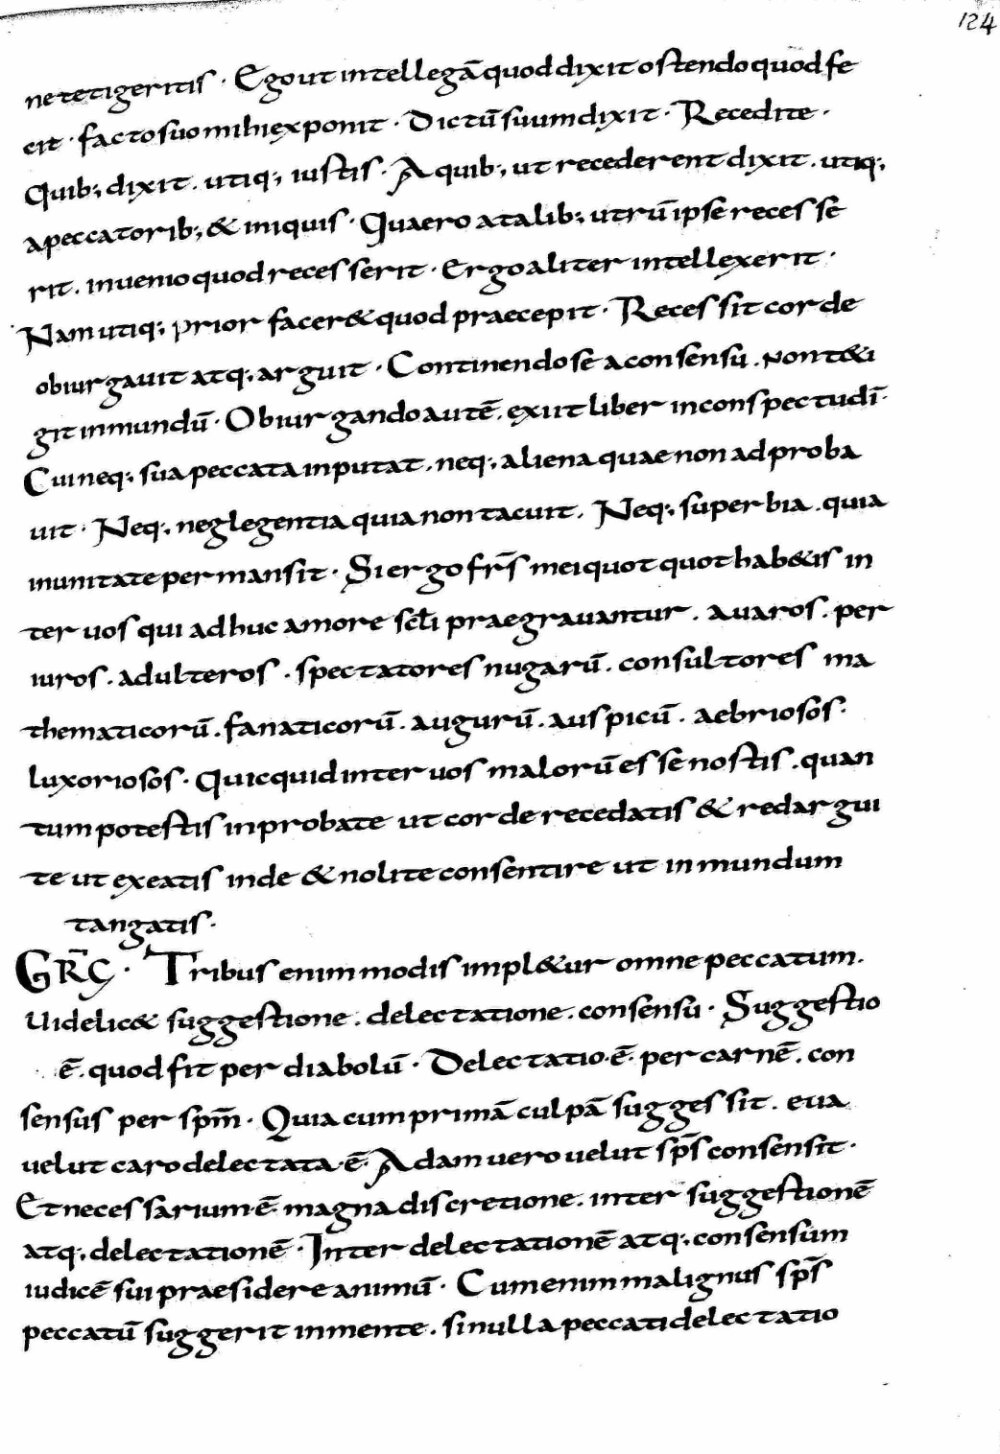 124
ne tetigeritis · Ego ut intellegā quod dixit ostendo quod fe
cit · facto suo mihi exponit · Dictū suum dixit · Recedite ·
Quib; dixit . utiq; iustis · A quib; ut recederent dixit . utiq;
a peccatorib; & iniquis · Quaero a talib; utrū ipse recesse
rit . inuenio quod recesserit · Ergo aliter intellexerit ·
Nam utiq; prior facer& quod praecepit · Recessit corde
obiurgauit atq; arguit · Continendo se a consensū . non t&i
git inmundū · Obiurgando autē . exiit liber in conspectu dī ·
Cui neq; sua peccata inputat . neq; aliena quae non adproba
uit · Neq; neglegentia quia non tacuit . Neq; superbia . quia
in unitate permansit · Si ergo fr̄s mei quot quot hab&is in
ter uos qui adhuc amore scl̄i praegrauantur . auaros . per
iuros . adulteros . spectatores nugarū . consultores ma
thematicorū . fanaticorū . augurū . auspicū . aebriosos ·
luxoriosos · Quicquid inter uos malorū esse nostis . quan
tum potestis inprobate ut corde recedatis & redargui
te ut exeatis inde & nolite consentire ut inmundum
tangatis ·
GR̄G · Tribus enim modis impl&ur omne peccatum .
Uidelic& suggestione . delectatione . consensū · Suggestio
ē . quod fit per diabolū · Delectatio · ē · per carnē . con
sensus per spm̄ · Quia cum primā culpā suggessit . eua
uelut caro delectata · ē · Adam uero uelut sp̄s consensit ·
Et necessarium · ē · magna discretione . inter suggestionē
atq; delectationē · Inter delectationē atq; consensum
iudicē sui praesidere animū · Cum enim malignus sp̄s
peccatū suggerit in mente . si nulla peccati delectatio